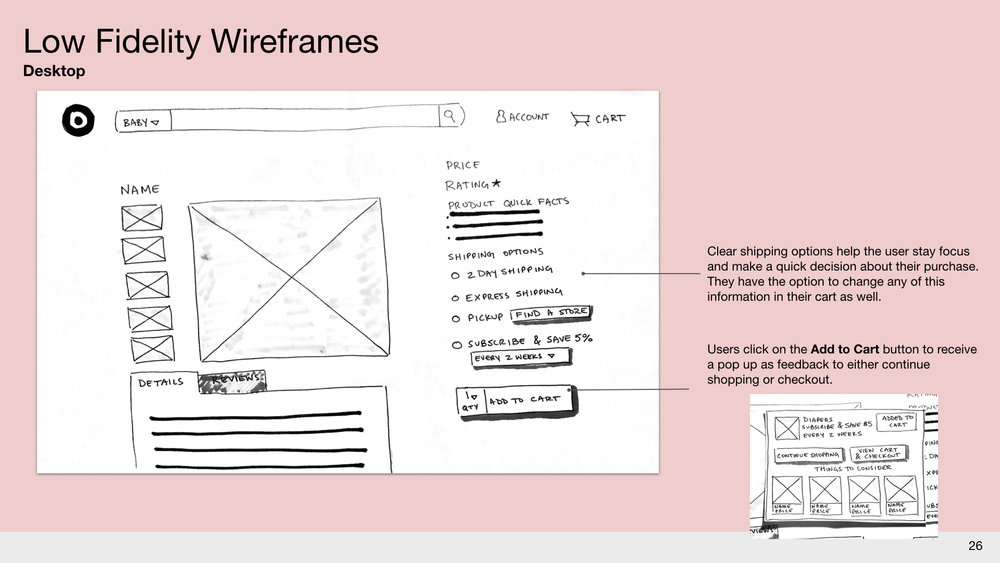 Low Fidelity Wireframes
Desktop
D
BABY
ACCOUNT
CART
NAME
PRICE
RATING★
PRODUCT QUICK FACTS
SHIPPING OPTIONS
2 DAY SHIPPING
EXPRESS SHIPPING
PICKUP FIND A STORE
SUBSCRIBE & SAVE 5%
EVERY 2 WEEKS
1
QTY
ADD TO CART
DETAILS
REVIEWS
Clear shipping options help the user stay focus
and make a quick decision about their purchase.
They have the option to change any of this
information in their cart as well.
Users click on the Add to Cart button to receive
a pop up as feedback to either continue
shopping or checkout.
DIAPERS
SUBSCRIBE & SAVE $5
EVERY 2 WEEKS
ADDED TO
CART
CONTINUE SHOPPING
VIEW CART
& CHECKOUT
THINGS TO CONSIDER
NAME
PRICE
NAME
PRICE
NAME
PRICE
NAME
PRICE
26